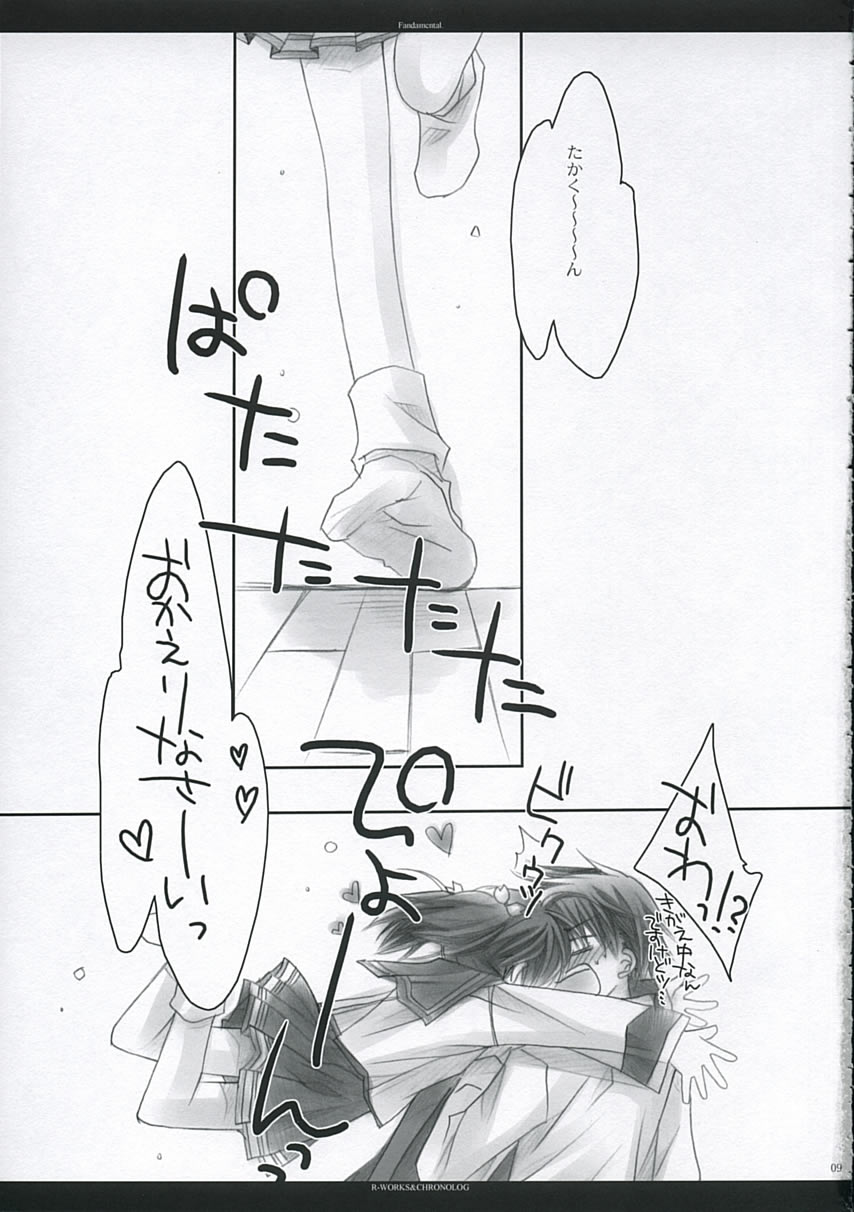 Fandamental.
たかく～～～～ん
ぱたたたた
おかえりなさーいっ♡♡♡
ぴょーんっ
ビクウッ
なわっ!?
きがえ中なん
ですけどッ…
09
R-WORKS&CHRONOLOG